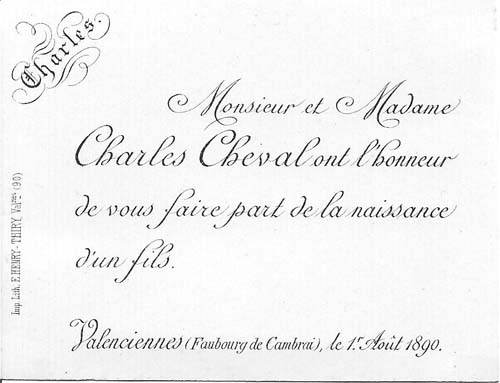 Charles.
Monsieur et Madame
Charles Cheval ont l'honneur
de vous faire part de la naissance
d'un fils.
Valenciennes (Faubourg de Cambrai), le 1.r Août 1890.
Imp. Lith. E. HENRY-THIRY, Val.nes (90)